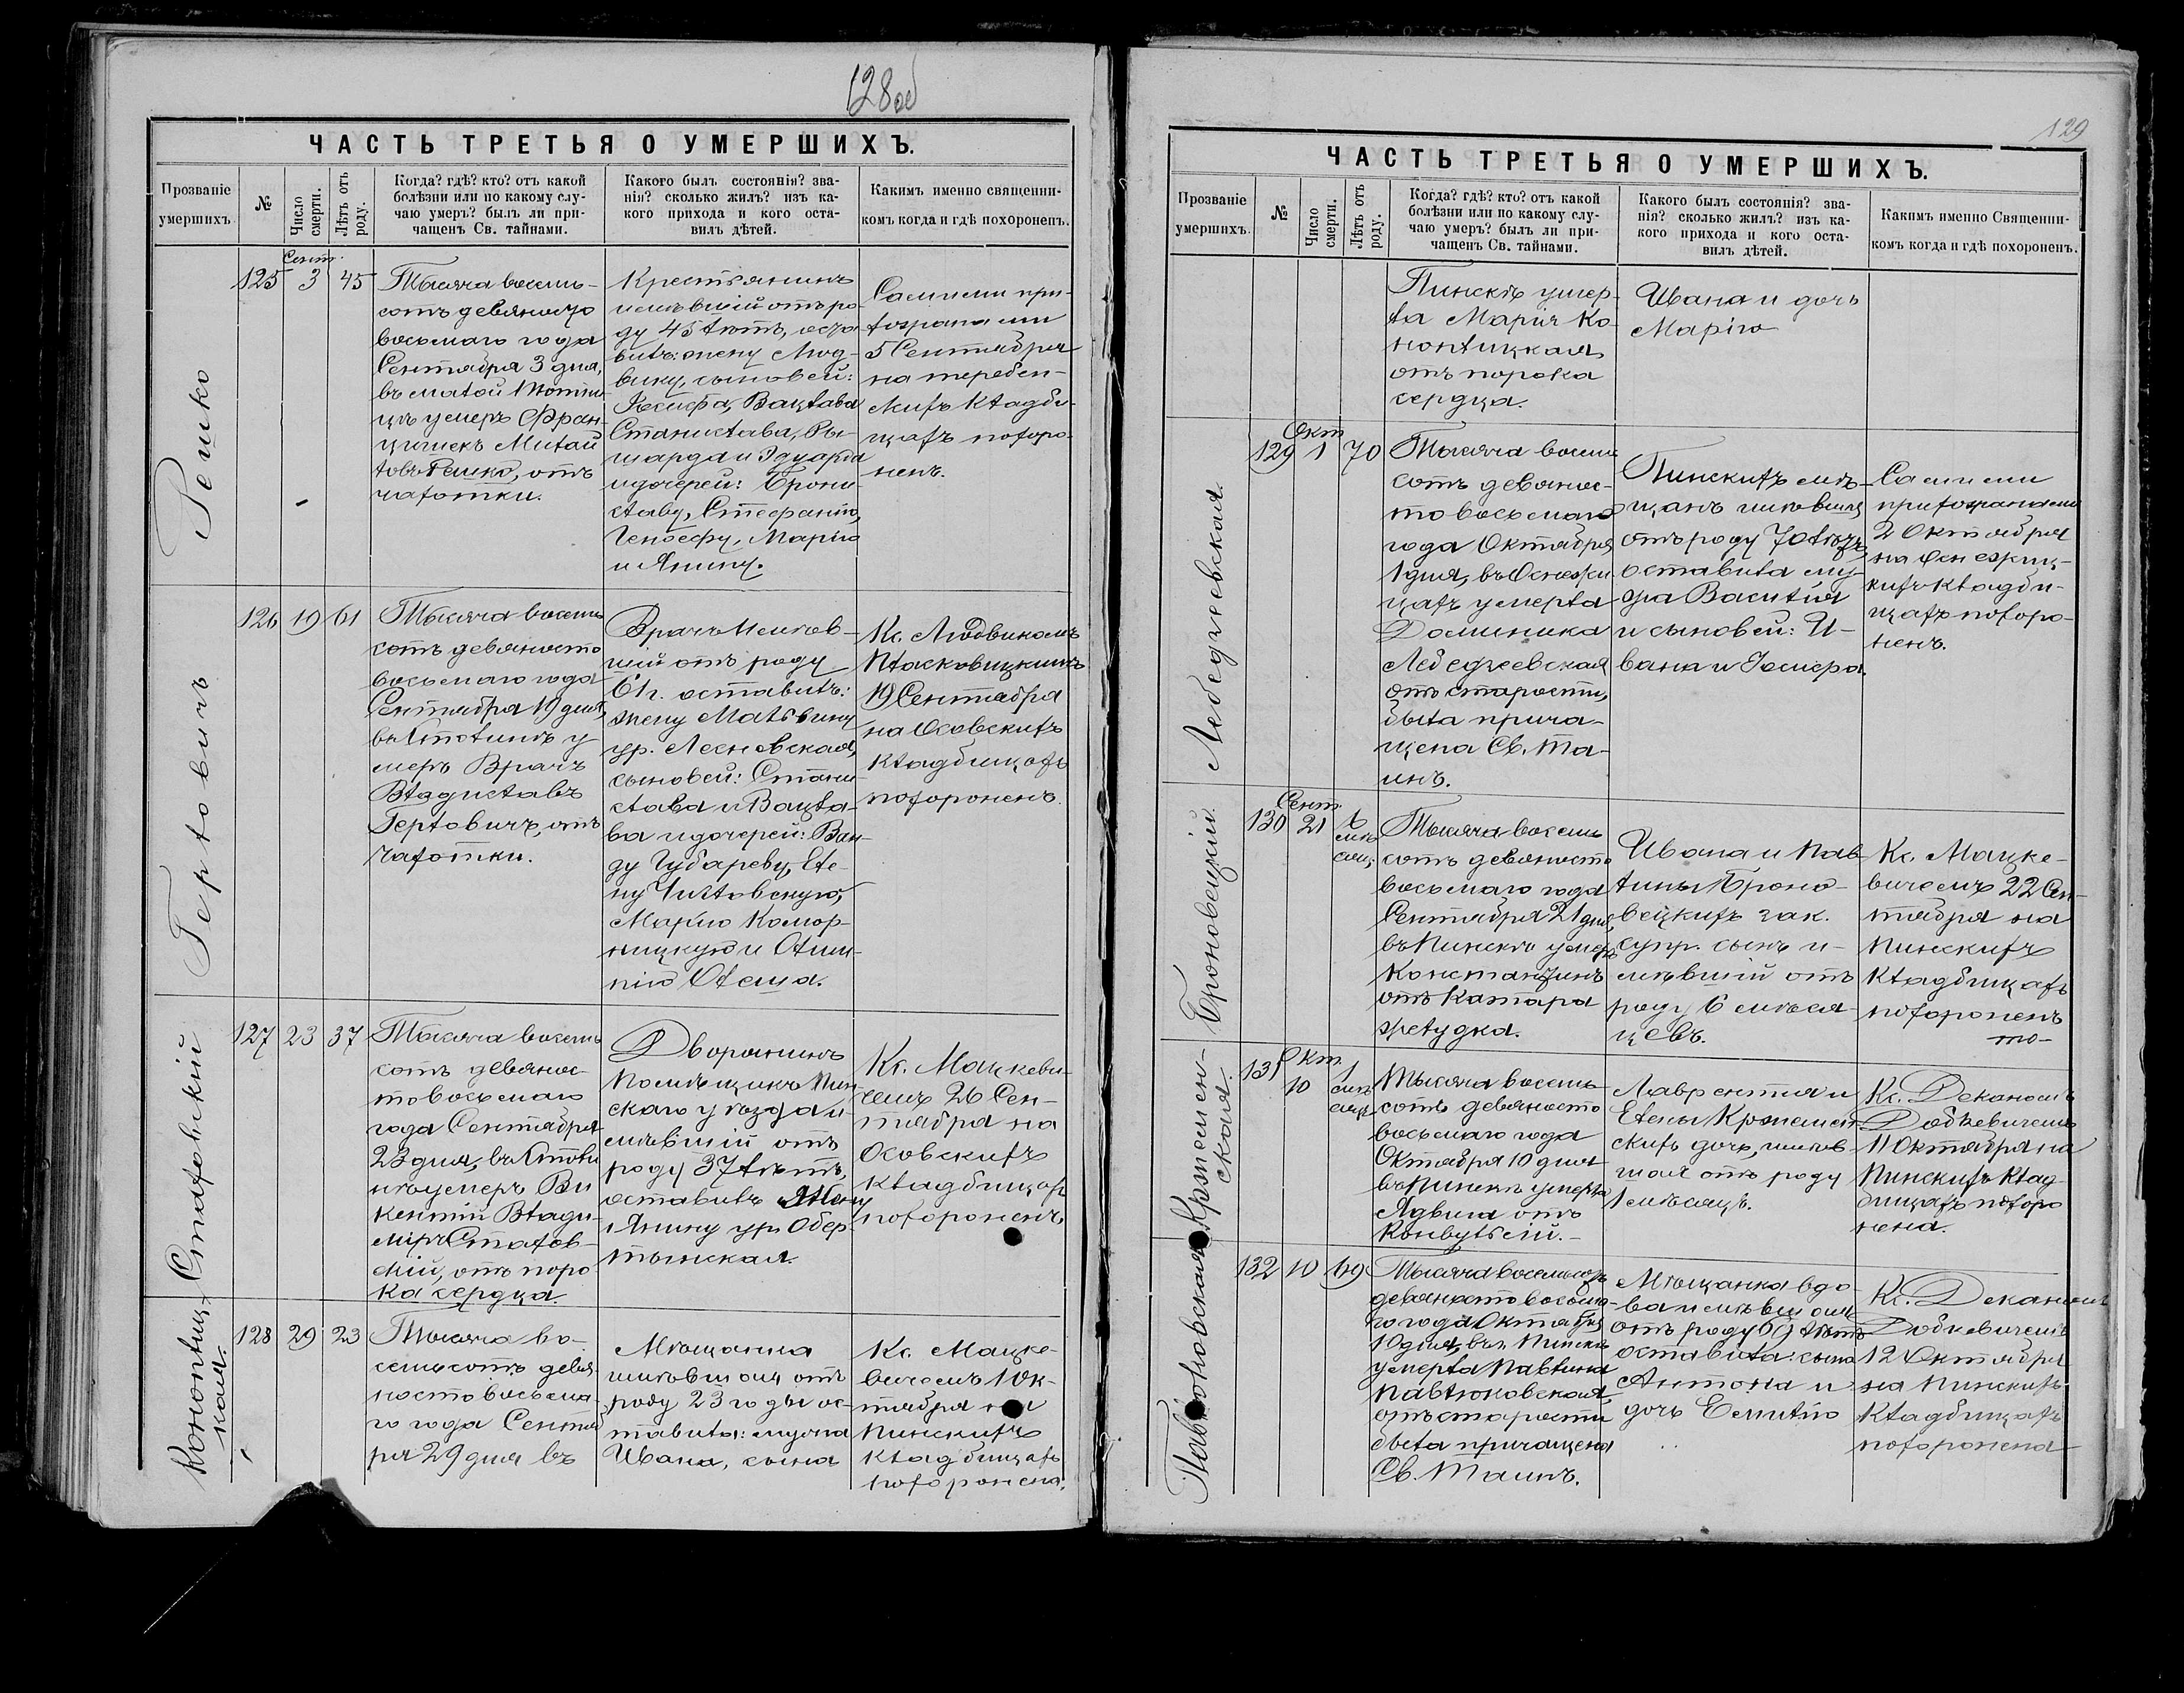 128 об
ЧАСТЬ ТРЕТЬЯ О УМЕРШИХЪ.
Прозваніе
умершихъ.
№
Число
смерти.
Лѣтъ отъ
роду.
Когда? гдѣ? кто? отъ какой
болѣзни или по какому слу-
чаю умеръ? былъ ли при-
чащенъ Св. тайнами.
Какого былъ состоянія? зва-
нія? сколько жилъ? изъ ка-
кого прихода и кого оста-
вилъ дѣтей.
Какимъ именно священни-
комъ когда и гдѣ похороненъ.
Гешко
Сент.
125 3 45
Тысяча восемь-
сотъ девяносто
восьмаго года
Сентября 3 дня,
въ малой
умеръ Фран-
цишекъ Михай
ловъ Гешко, отъ
чахотки.
Крестьянинъ
имѣвшій отъ ро-
ду 45 лѣтъ, оста
вилъ: жену Люд-
вику, сыновей:
Іосифа, Вацлава
Станислава, Ры-
шарда и Эдуарда
и дочерей: Брони
славу, Стефанію,
Геновефу, Марію
и Янину.
Самими при-
хожанами
5 Сентября
на теребен-
скихъ кладби-
щахъ похоро-
ненъ.
Гертовичъ
126 19 61
Тысяча восемь
сотъ девяносто
восьмаго года
Сентября 19 дня,
въ Столинѣ у
меръ Врачъ
Владиславъ
Гертовичъ, отъ
чахотки.
Врачъ Имѣв-
шій отъ роду
61 г. оставилъ:
жену Мальвину
ур. Лесневская,
сыновей: Стани
слава и Вацла-
ва и дочерей: Ван-
ду Губареву, Еле-
ну
Марію Комор-
ницкую и Олим-
пію Олеша.
Кс. Людвикомъ
Пласковицкимъ
19 Сентября
на Осовскихъ
кладбищахъ
похороненъ.
Стаховскій
127 23 37
Тысяча восемь
сотъ девянос-
то восьмаго
года Сентября
23 дня, въ
умеръ Ви
кентій Влади-
міръ Стахов-
скій, отъ поро
ка сердца.
Дворянинъ
помѣщикъ Пин-
скаго уѣзда и-
мѣвшій отъ
роду 37 лѣтъ,
оставилъ жену
Янину ур. Обер
тынская.
Кс. Мацкеви-
чемъ 26 Сен-
тября на
Осовскихъ
кладбищах
похороненъ.
Коноплиц-
кая.
128 29 23
Тысяча во-
семьсотъ девя
носто восьма-
го года Сентяб
ря 29 дня въ
Мѣщанка
имѣвшая отъ
роду 23 годы ос-
тавила: мужа
Ивана, сына
Кс. Мацке-
вичемъ 1 Ок-
тября на
Пинскихъ
кладбищахъ
похоронена.
129
ЧАСТЬ ТРЕТЬЯ О УМЕРШИХЪ.
Прозваніе
умершихъ.
№
Число
смерти.
Лѣтъ отъ
роду.
Когда? гдѣ? кто? отъ какой
болѣзни или по какому слу-
чаю умеръ? былъ ли при-
чащенъ Св. тайнами.
Какого былъ состоянія? зва-
нія? сколько жилъ? изъ ка-
кого прихода и кого оста-
вилъ дѣтей.
Какимъ именно Священни-
комъ когда и гдѣ похороненъ.
Пинскѣ умер-
ла Марія Ко-
ноплицкая,
отъ порока
сердца.
Ивана и дочь
Марію
Лебедзеевская.
Окт.
129 1 70
Тысяча восемь
сотъ девянос-
то восьмаго
года Октября
1 дня, въ Оснежи
цахъ умерла
Доминика
Лебедзеевская
отъ старости,
была прича-
щена Св. Та-
инъ.
Пинскихъ мѣ-
щанъ имѣвшая
отъ роду 70 лѣтъ
оставила му-
жа Василія
и сыновей: И-
вана и Іосифа.
Самими
прихожанами
2 Октября
на Оснежиц-
кихъ кладби-
щахъ похоро-
ненъ.
Броновецкій.
Сент.
130 21 6
мѣ
сяц.
Тысяча восемь
сотъ девяносто
восьмаго года
Сентября 21 дня,
въ Пинскѣ умеръ
Константинъ
отъ катара
желудка.
Ивана и Пав-
лины Броно-
вецкихъ зак.
супр. сынъ и-
мѣвшій отъ
роду 6 мѣся-
цевъ.
Кс. Мацке-
вичемъ 22 Сен-
тября на
Пинскихъ
кладбищахъ
похороненъ
то-
Кржемен-
ская.
Окт.
131 10 1
мѣ
сяц.
Тысяча восемь
сотъ девяносто
восьмаго года
Октября 10 дня
въ Пинскѣ умерла
Ядвига отъ
конвульсій.-
Лаврентія и
Елены Кржемен
скихъ дочь, имѣв
шая отъ роду
1 мѣсяцъ.
Кс. Деканомъ
Добкевичемъ
11 Октября на
Пинскихъ клад
бищахъ похоро
нена.
Павлюковская
132 10 69
Тысяча восемьсотъ
девяносто восьма-
го года Октября
10 дня, въ г. Пинскѣ
умерла Павлина
Павлюковская,
отъ старости
была причащена
Св. Таинъ.
Мѣщанка вдо
ва имѣвшая
отъ роду 69 лѣтъ
оставила: сына
Антона и
дочь Емилію
Кс. Деканомъ
Добкевичемъ
12 Октября
на Пинскихъ
кладбищахъ
похоронена